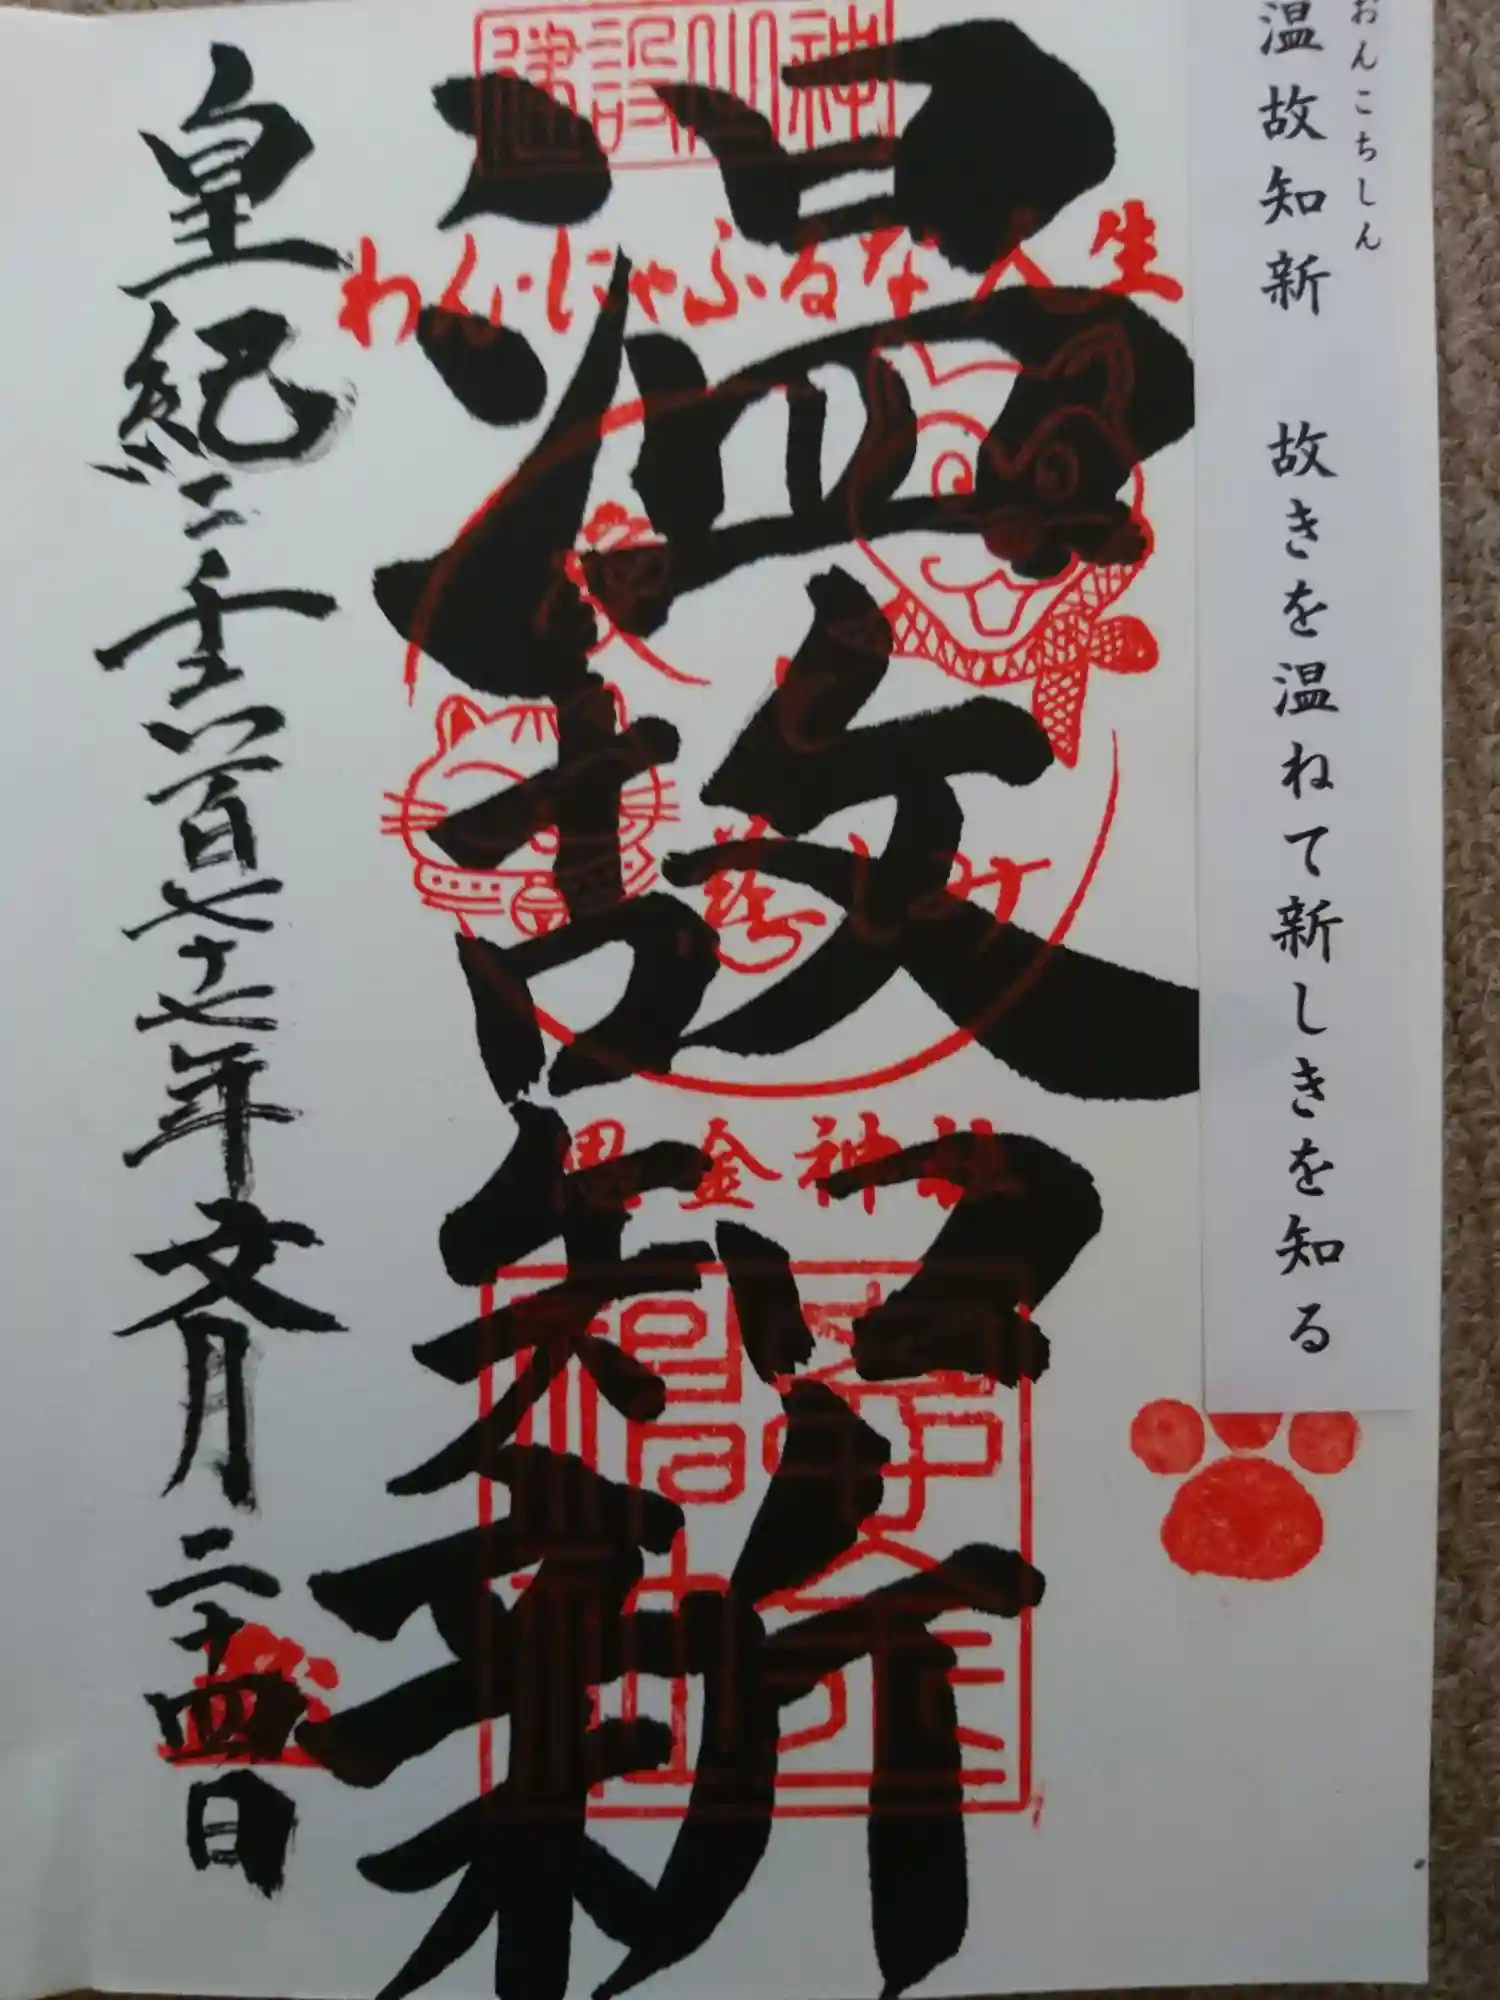 おんこちしん
温故知新 故きを温ねて新しきを知る
建設之神
わんにゃふるな人生
温故知新
思金神社
皇紀二千六百七十七年文月二十四日